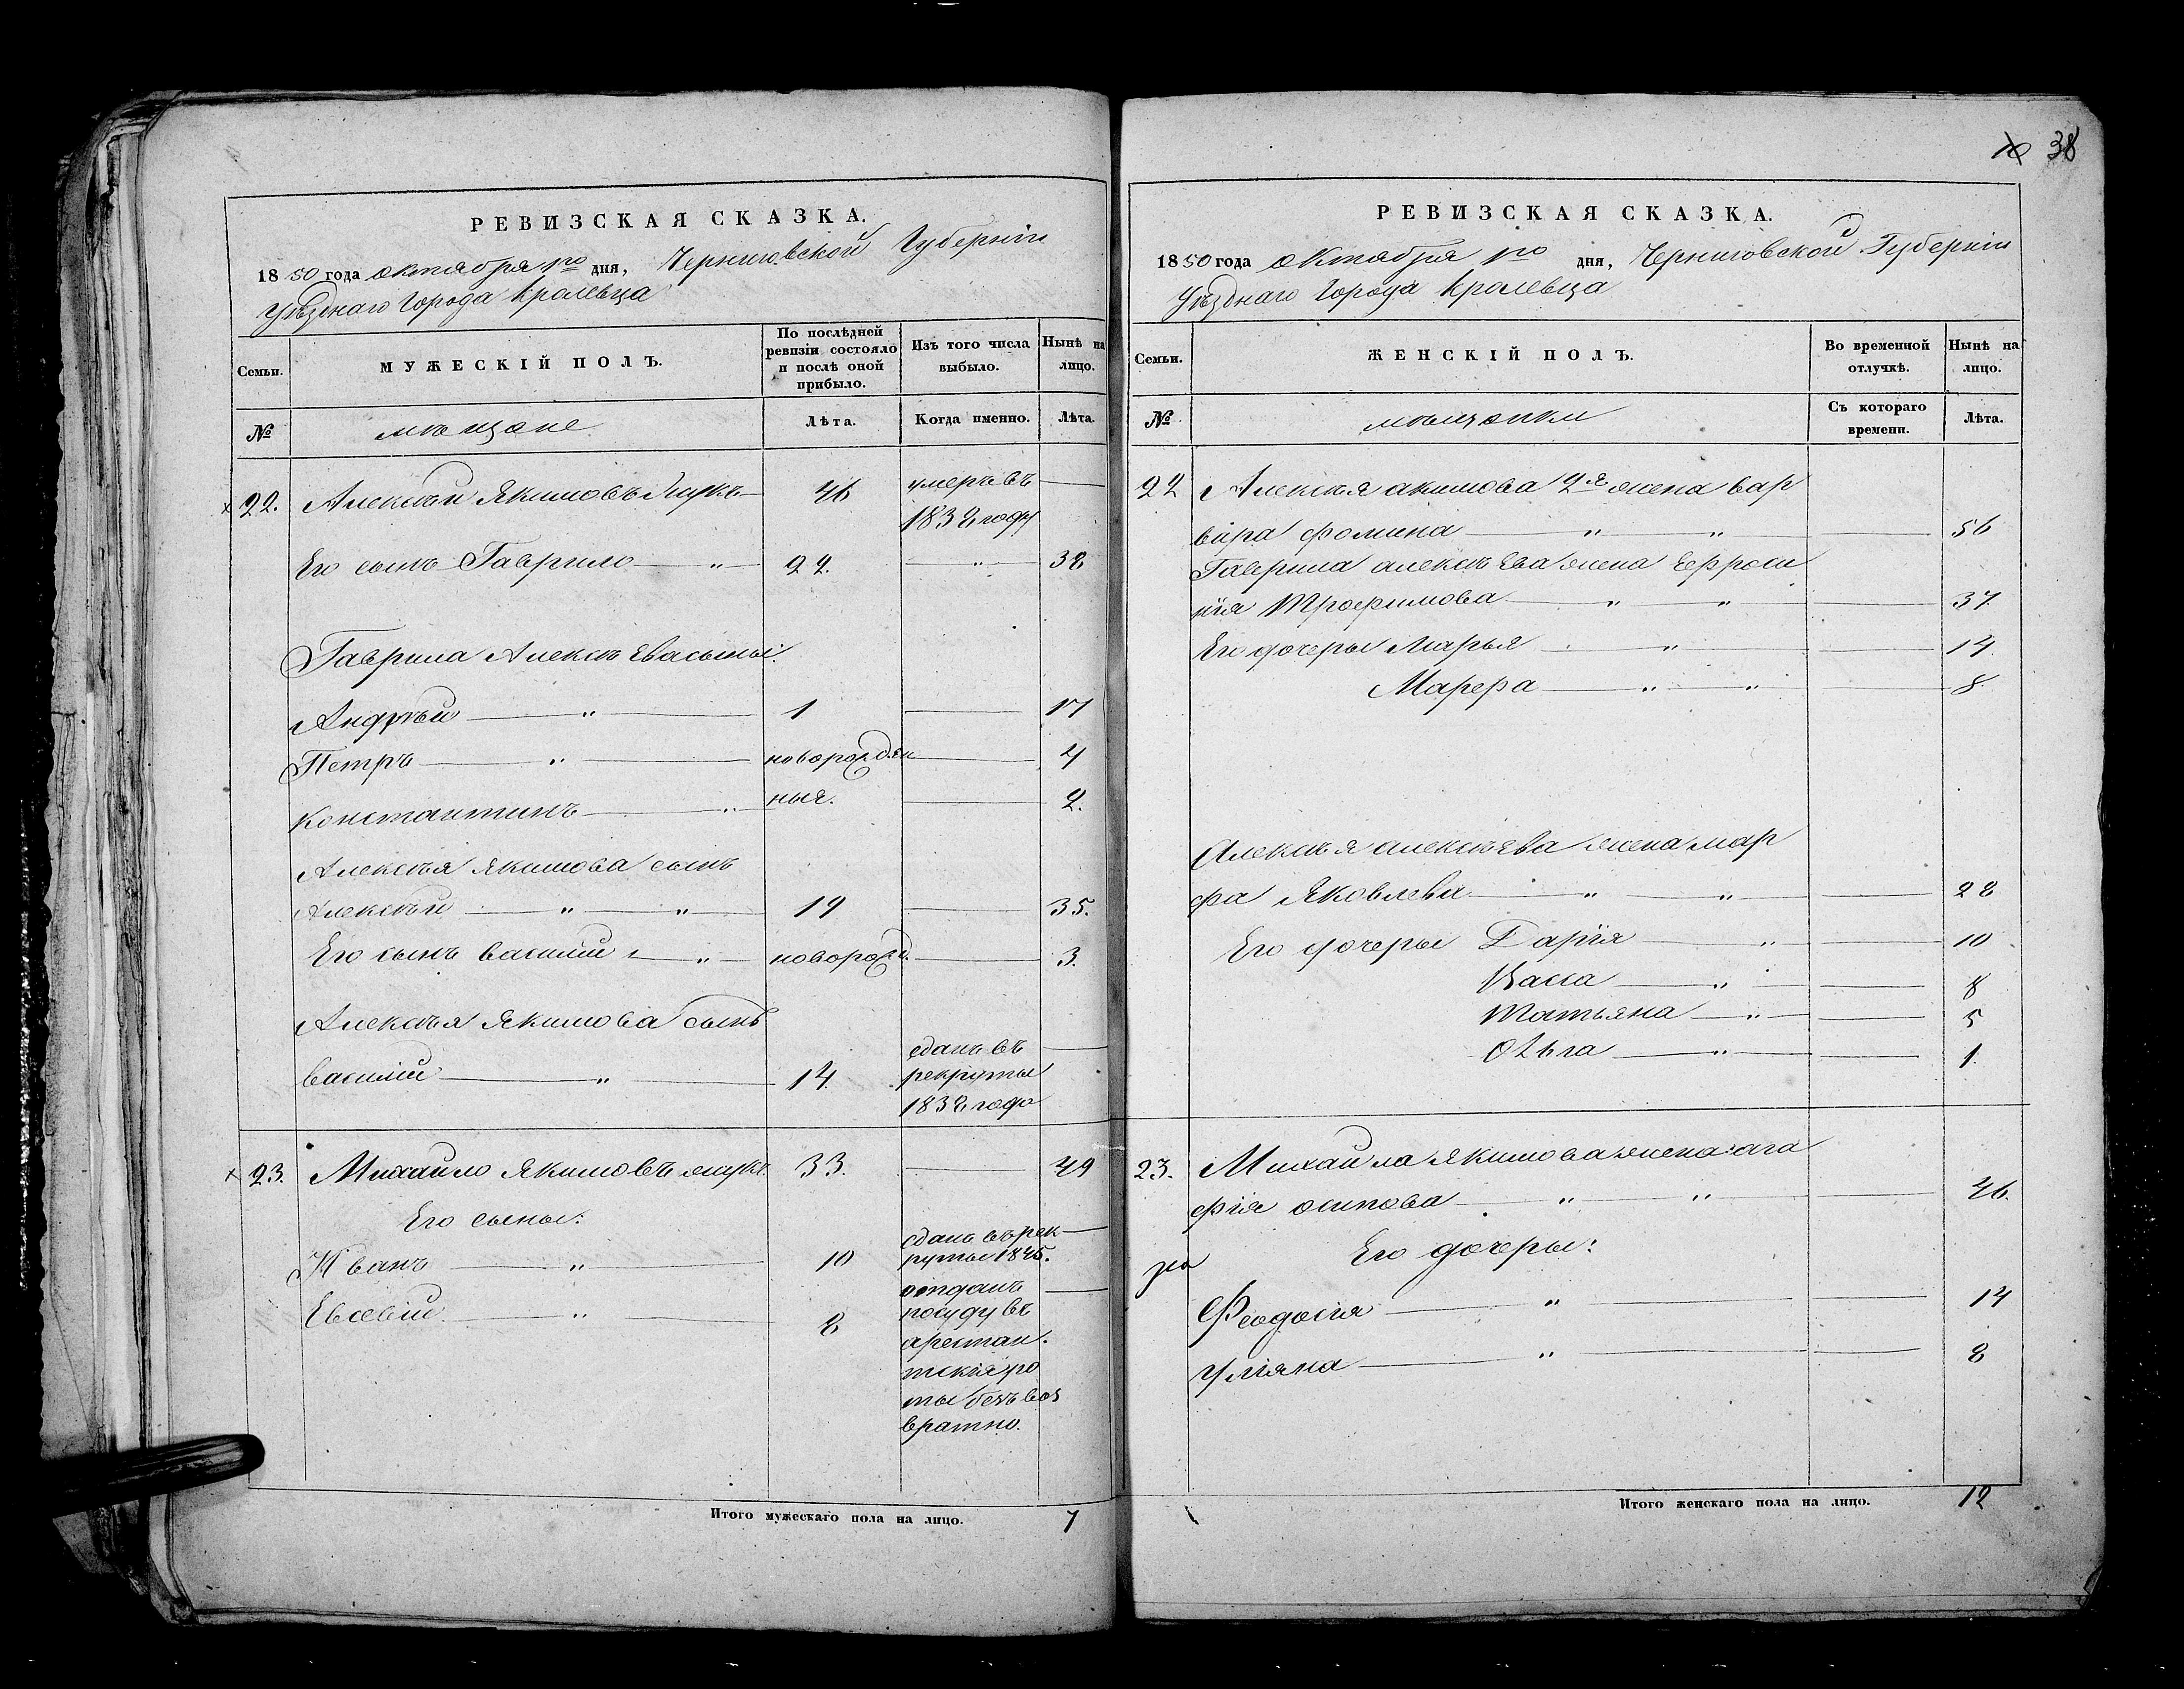 РЕВИЗСКАЯ СКАЗКА.
1850 года октября 1го дня, Черниговской Губерніи
Уѣзднаго Города Кролевца
Семьи. МУЖЕСКІЙ ПОЛЪ. По послѣдней ревизіи состояло и послѣ оной прибыло. Изъ того числа выбыло. Нынѣ на лицо.
№ мѣщане Лѣта. Когда именно. Лѣта.
22. Алексѣй Якимовъ 46 умеръ въ
1838 году
Его сынъ Гаврило 22. 38
Гаврила Алексѣева сыны:
Андрѣй 1 17
Петръ новорожден 4
Константинъ ныя. 2.
Алексѣя Якимова сынъ
Алексѣй 19 35.
Его сынъ василій новорожд. 3.
Алексѣя Якимова сынъ
василій 14. сданъ въ
рекруты
1838 года
23. Михайло Якимовъ 33. 49
Его сыны:
Иванъ 10 сданъ въ рек
руты 1845.
Евсевій 8 отданъ
посуду въ
арестан
тскія ро
ты безъ воз
вратно.
Итого мужескаго пола на лицо. 7
38
РЕВИЗСКАЯ СКАЗКА.
1850 года октября 1го дня, Черниговской Губерніи
Уѣзднаго Города Кролевца
Семьи. ЖЕНСКІЙ ПОЛЪ. Во временной отлучкѣ. Нынѣ на лицо.
№ мѣщанки Съ котораго времени. Лѣта.
22 Алексѣя акимова 2я жена вар
вара фомина 56
Гаврила алексѣева жена Ефроси
нія Трофимова 37
Его дочеры Марья 14.
Марефа 8.
Алексѣя алексѣева жена мар
фа Яковлева 28
Его дочеры Дарія 10
Васса 8
Татьяна 5
Ольга 1.
23. Михайла Якимова жена ага
фія осипова 46.
Его дочеры:
Феодосія 14
Уліяна 8
Итого женскаго пола на лицо. 12